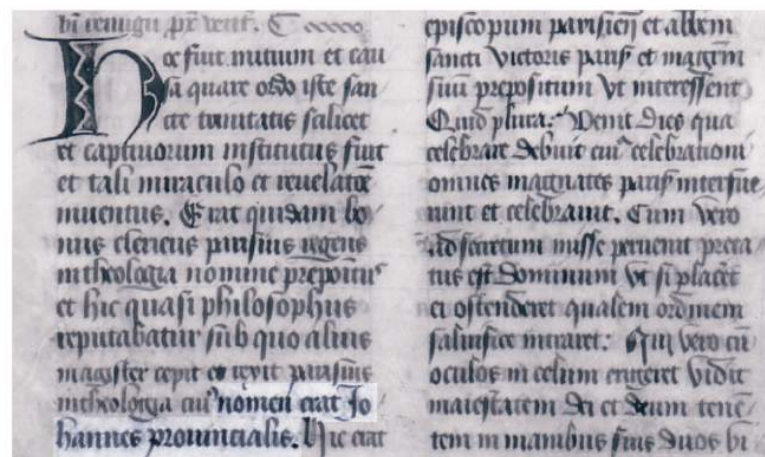 Hoc fuit initium et cau
sa quare ordo iste san
cte trinitatis scilicet
et captivorum institutus fuit
et tali miraculo et revelatoe
inventus. Erat quidam bo
nus clericus parisius regens
in theologia nomine prepoitus
et hic quasi philosophus
reputabatur sub quo alius
magister cepit et rexit parisius
in theologia cui' nomen erat Jo
hannes provincialis. Hic erat
episcopum parisien et abbem
sancti victoris paris et magrm
suu prepositum vt interessent
Quid plura. Venit dies qua
celebrare debuit cui' celebrationi
omnes magnates paris interfue
runt et celebravit. Cum vero
ad secretum misse pervenit preca
tus est dominum vt si placet
ei ostenderet qualem ordinem
salvifice intraret. Qui vero cu
oculos in celum erigeret vidit
maiestatem dei et deum tene
tem in manibus suis duos vi